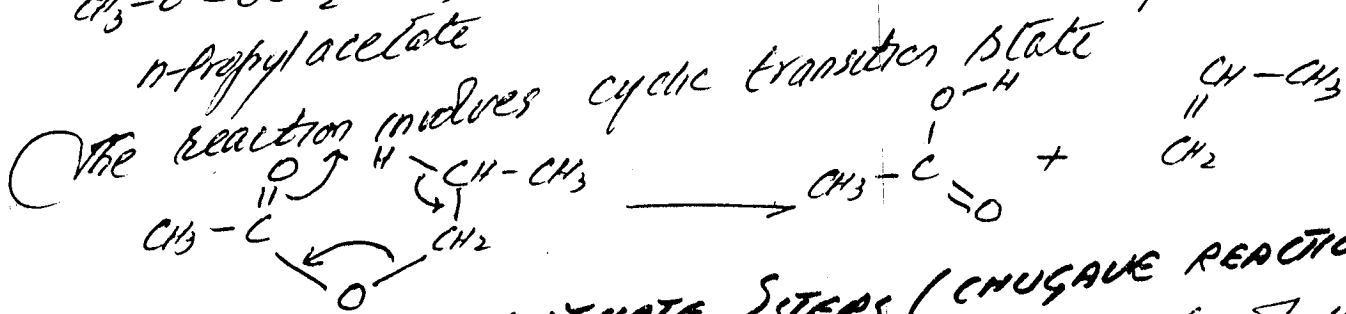 CH3-C-OC
n-propyl acetate
The reaction involves cyclic transition state
O-H CH-CH3
O H CH-CH3 || ||
CH3-C CH2 CH3-C + CH2
O =O
ESTERS (CHUGAVE REACTIO